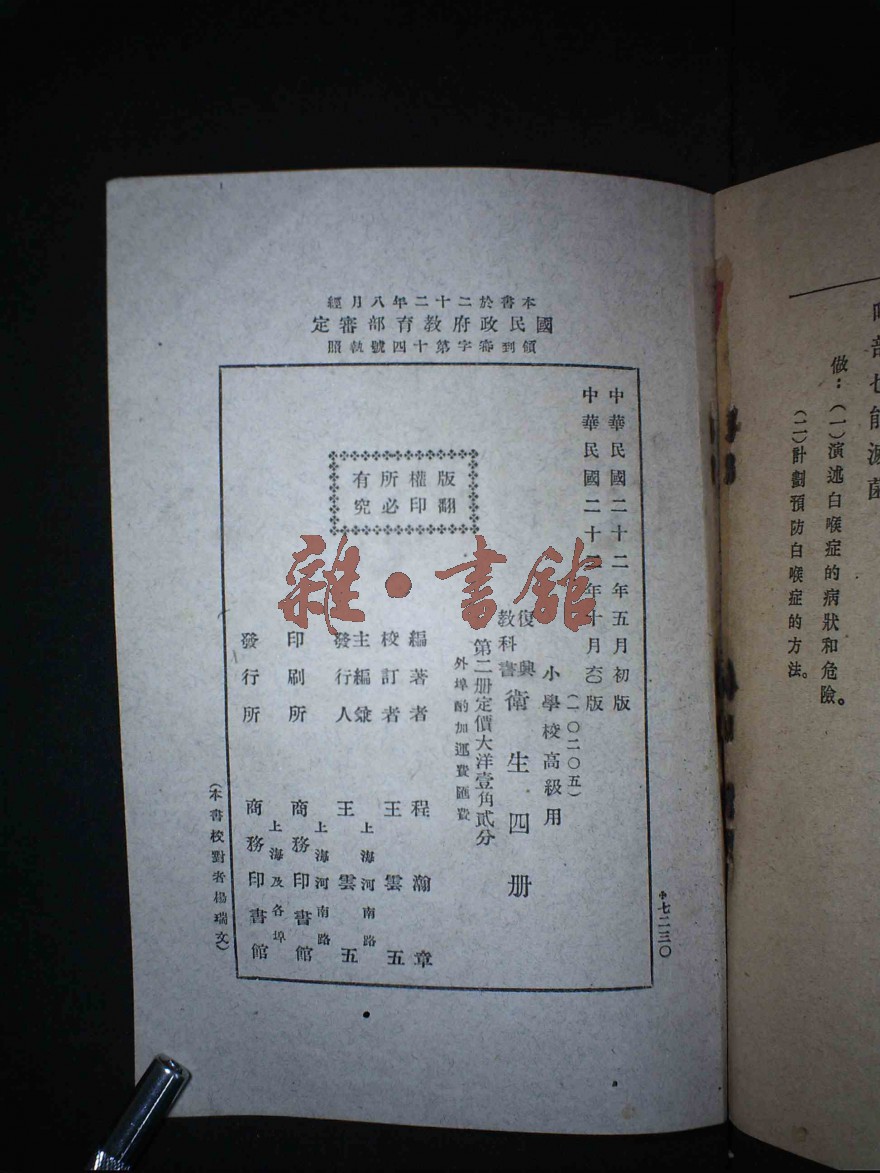 本書於二十二年八月經
國民政府教育部審定
領到審字第十四號執照
中華民國二十二年五月初版
中華民國二十二年十月六〇版
(一〇二〇五)
小學校高級用
復興
教科書
衛生四册
第二册定價大洋壹角貳分
外埠酌加運費匯費
版權所有
翻印必究
編著者 程瀚章
校訂者 王雲五
主編兼
發行人
王雲五
上海河南路
印刷所 商務印書館
上海河南路
發行所 商務印書館
上海及各埠
(本書校對者楊瑞文)
七二三〇
雜·書館
部也能滅菌
做：(一)演述白喉症的病狀和危險。
(二)計劃預防白喉症的方法。